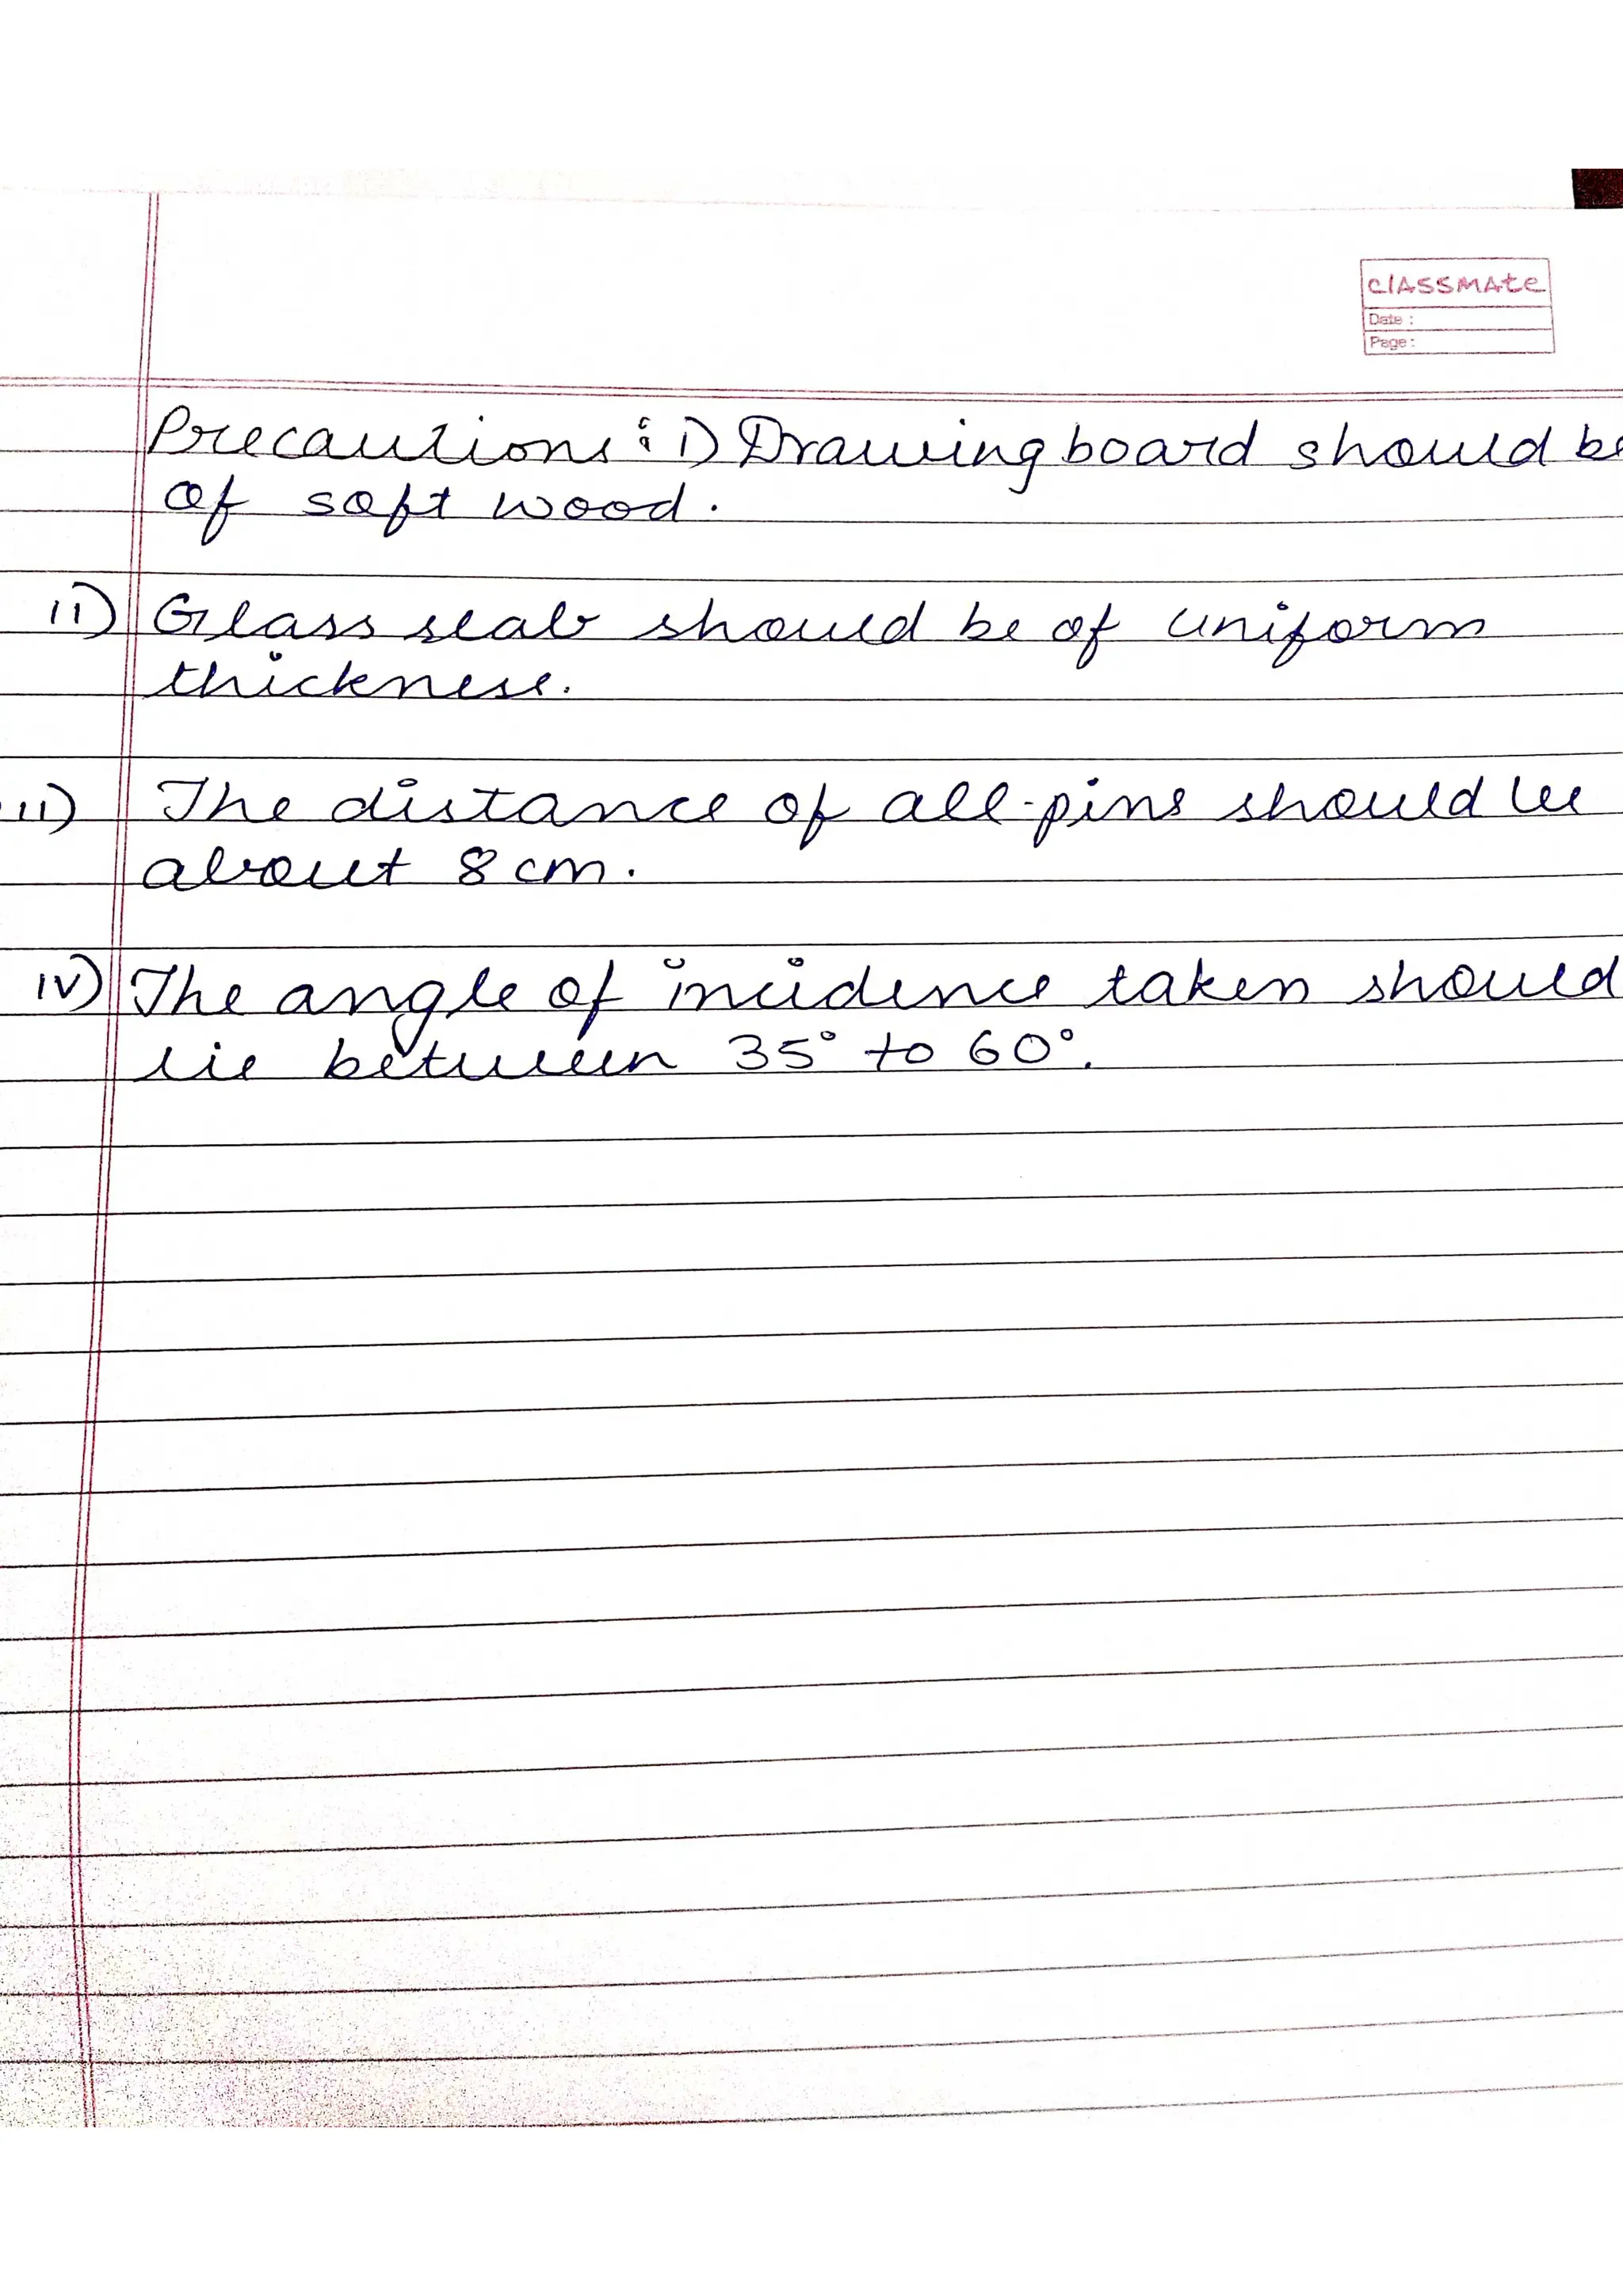 classmate
Date :
Page :
Precautions : i) Drawing board should be
of soft wood.
ii) Glass slab should be of uniform
thickness.
ii) The distance of all-pins should be
about 8 cm.
iv) The angle of incidence taken should
lie between 35° to 60°.